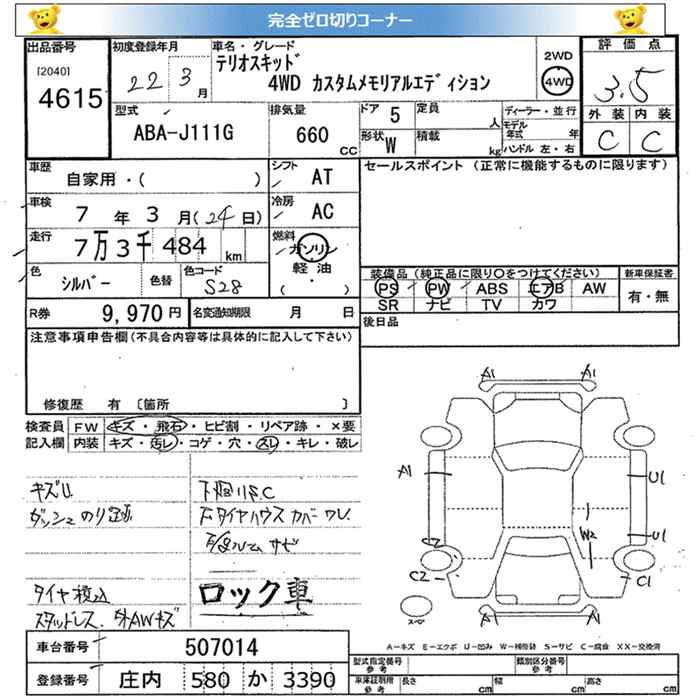 完全ゼロ切りコーナー
出品番号
[2040]
4615
初度登録年月
22年 3月
車名・グレード
テリオスキッド
4WD カスタムメモリアルエディション
2WD
4WD
評価点
3.5
外装 内装
C C
型式
ABA-J111G
排気量
660 cc
ドア 5
形状 W
定員 人
積載 kg
ディーラー・並行
モデル年式 年
ハンドル 左・右
車歴
自家用・( )
シフト AT
車検
7年3月(24日)
冷房 AC
走行
7万3千484 km
燃料 ガソリン
軽油
( ・ )
色
シルバー
色替
色コード
S28
セールスポイント (正常に機能するものに限ります)
装備品(純正品に限り○をつけてください)
PS PW ABS エアB AW
SR ナビ TV カワ
新車保証書
有・無
R券 9,970円
名変通知期限 月 日
後日品
注意事項申告欄(不具合内容等は具体的に記入して下さい)
修復歴 有 〔箇所 〕
検査員記入欄
FW キズ・飛石・ヒビ割・リペア跡・×要
内装 キズ・汚レ・コゲ・穴・スレ・キレ・破レ
キズU
ダッシュのり跡
下回りS.C
タイヤハウスカバーワレ
ルームサビ
タイヤ積込
スタッドレス
ロック車
A1 A1
A1
U1
U1
W2
C2
C2
C1
A1 A1
A-キズ E-エクボ U-凹み W-補修跡 S-サビ C-腐食 XX-交換済
車台番号 507014
登録番号 庄内 580 か 3390
型式指定番号 参考
類別区分番号 参考
車庫証明用 参考
長さ cm 幅 cm 高さ cm